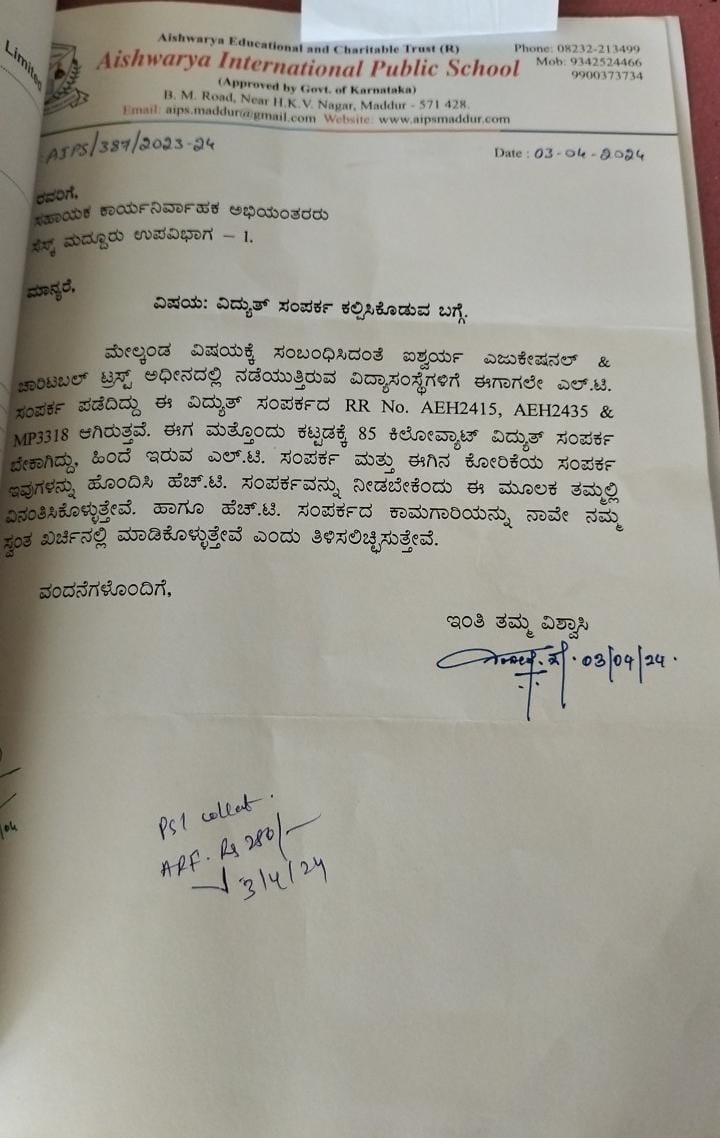 Limited
Aishwarya Educational and Charitable Trust (R)
Phone: 08232-213499
Aishwarya International Public School
Mob: 9342524466
(Approved by Govt. of Karnataka)
9900373734
B. M. Road, Near H.K.V. Nagar, Maddur - 571 428.
Email: aips.maddur@gmail.com Website: www.aipsmaddur.com
AIPS/387/2023-24
Date : 03-04-2024
ರವರಿಗೆ,
ಸಹಾಯಕ ಕಾರ್ಯನಿರ್ವಾಹಕ ಅಭಿಯಂತರರು
ಸೆಸ್ಕ್ ಮದ್ದೂರು ಉಪವಿಭಾಗ – 1.
ಮಾನ್ಯರೆ,
ವಿಷಯ: ವಿದ್ಯುತ್ ಸಂಪರ್ಕ ಕಲ್ಪಿಸಿಕೊಡುವ ಬಗ್ಗೆ.
ಮೇಲ್ಕಂಡ ವಿಷಯಕ್ಕೆ ಸಂಬಂಧಿಸಿದಂತೆ ಐಶ್ವರ್ಯ ಎಜುಕೇಷನಲ್ &
ಚಾರಿಟಬಲ್ ಟ್ರಸ್ಟ್ ಅಧೀನದಲ್ಲಿ ನಡೆಯುತ್ತಿರುವ ವಿದ್ಯಾಸಂಸ್ಥೆಗಳಿಗೆ ಈಗಾಗಲೇ ಎಲ್.ಟಿ.
ಸಂಪರ್ಕ ಪಡೆದಿದ್ದು ಈ ವಿದ್ಯುತ್ ಸಂಪರ್ಕದ RR No. AEH2415, AEH2435 &
MP3318 ಆಗಿರುತ್ತವೆ. ಈಗ ಮತ್ತೊಂದು ಕಟ್ಟಡಕ್ಕೆ 85 ಕಿಲೋವ್ಯಾಟ್ ವಿದ್ಯುತ್ ಸಂಪರ್ಕ
ಬೇಕಾಗಿದ್ದು, ಹಿಂದೆ ಇರುವ ಎಲ್.ಟಿ. ಸಂಪರ್ಕ ಮತ್ತು ಈಗಿನ ಕೋರಿಕೆಯ ಸಂಪರ್ಕ
ಇವುಗಳನ್ನು ಹೊಂದಿಸಿ ಹೆಚ್.ಟಿ. ಸಂಪರ್ಕವನ್ನು ನೀಡಬೇಕೆಂದು ಈ ಮೂಲಕ ತಮ್ಮಲ್ಲಿ
ವಿನಂತಿಸಿಕೊಳ್ಳುತ್ತೇವೆ. ಹಾಗೂ ಹೆಚ್.ಟಿ. ಸಂಪರ್ಕದ ಕಾಮಗಾರಿಯನ್ನು ನಾವೇ ನಮ್ಮ
ಸ್ವಂತ ಖರ್ಚಿನಲ್ಲಿ ಮಾಡಿಕೊಳ್ಳುತ್ತೇವೆ ಎಂದು ತಿಳಿಸಲಿಚ್ಛಿಸುತ್ತೇವೆ.
ವಂದನೆಗಳೊಂದಿಗೆ,
ಇಂತಿ ತಮ್ಮ ವಿಶ್ವಾಸಿ
03/04/24.
collect.
ARF. Rs 280/-
3/4/24